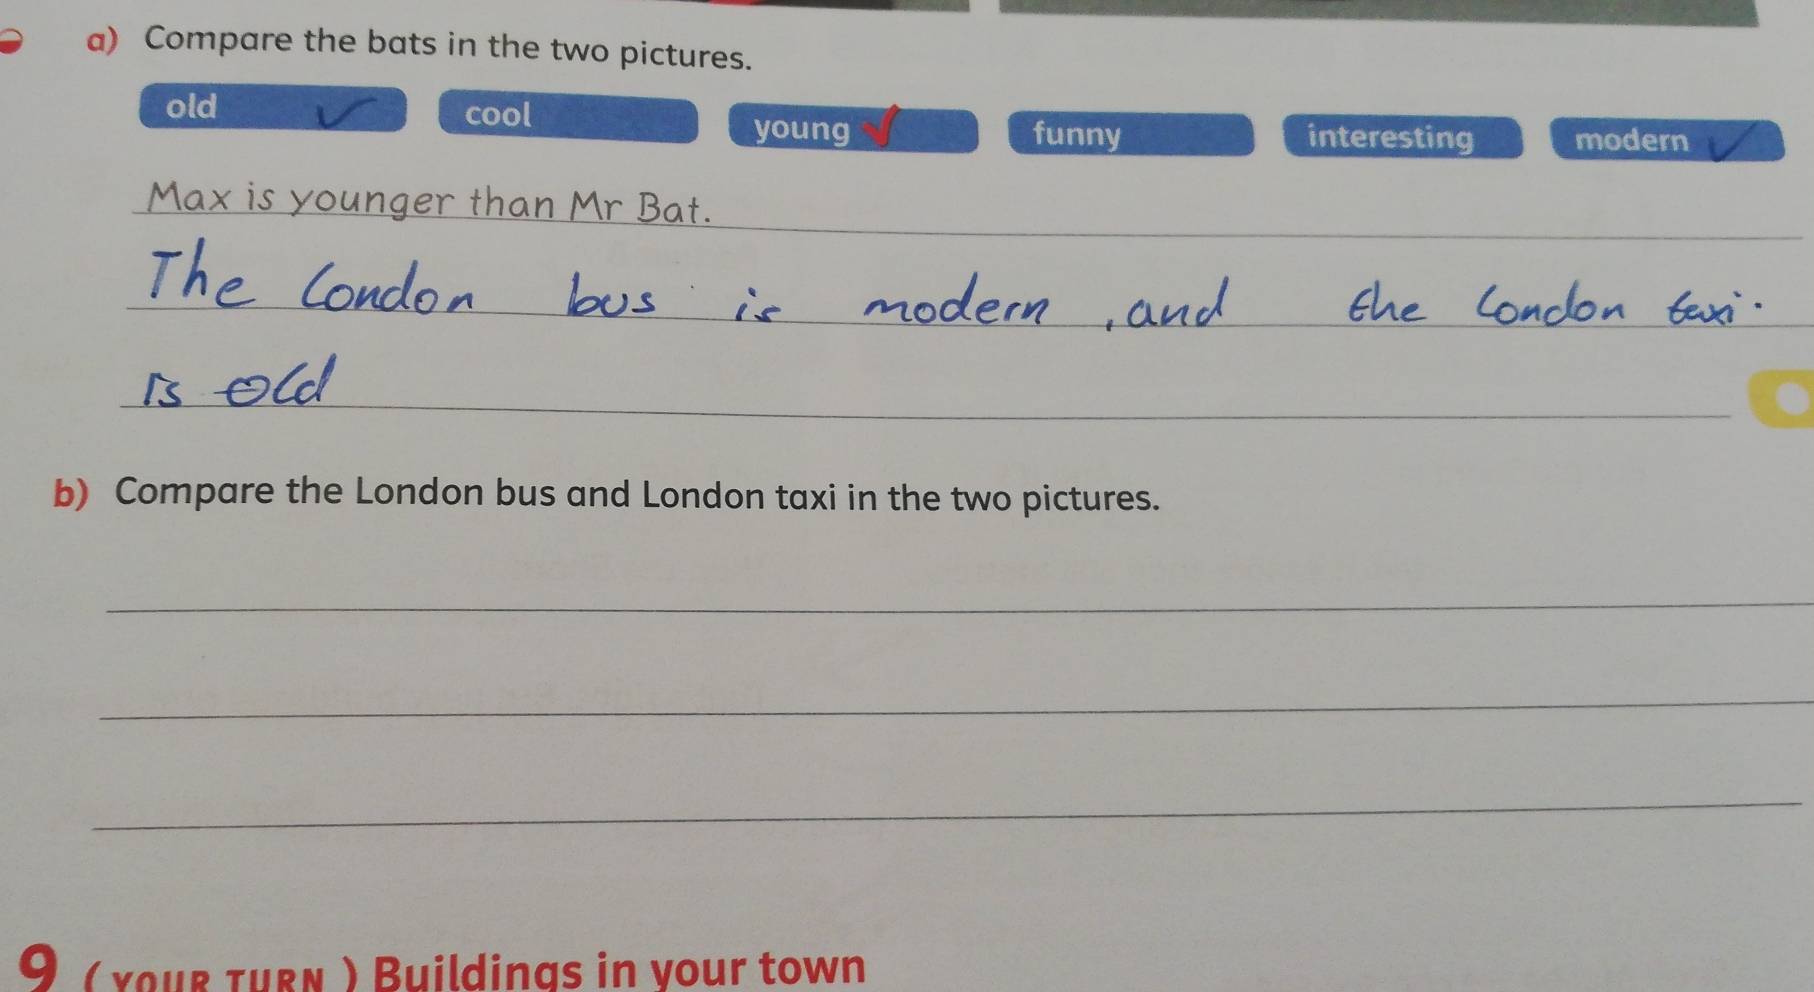 a) Compare the bats in the two pictures.
old cool young funny interesting modern
Max is younger than Mr Bat.
The London bus is modern, and the London taxi.
is old
b) Compare the London bus and London taxi in the two pictures.
9 ( YOUR TURN ) Buildings in your town